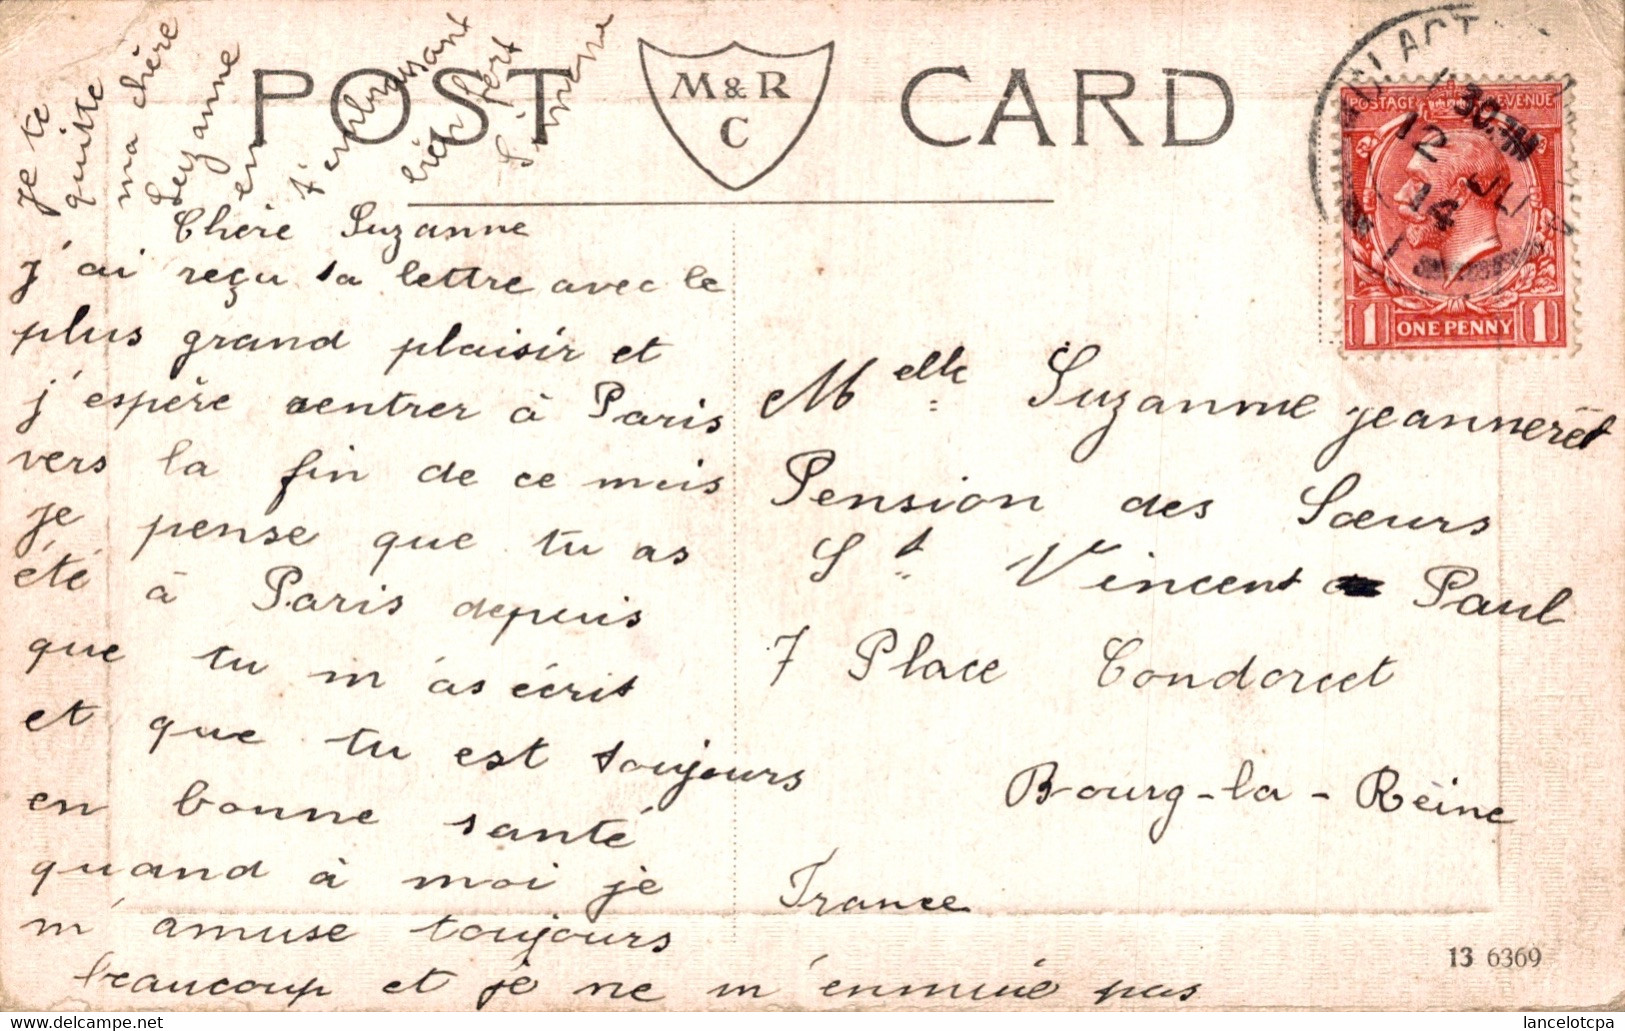 POST CARD
M & R
C
POSTAGE REVENUE
ONE PENNY
1 1
30 PM
12 JL
14
Chère Suzanne
j'ai reçu ta lettre avec le
plus grand plaisir et
j'espère rentrer à Paris
vers la fin de ce mois
je pense que tu as
été à Paris depuis
que tu m'as écrit
et que tu est toujours
en bonne santé
quand à moi je
m'amuse toujours
beaucoup et je ne m'ennuie pas
Je te
quitte
ma chère
Suzanne
en
t'embrassant
bien fort
Simone
Melle Suzanne Jeanneret
Pension des Sœurs
St Vincent Paul
7 Place Condorcet
Bourg-la-Reine
France
13 6369
lancelotcpa